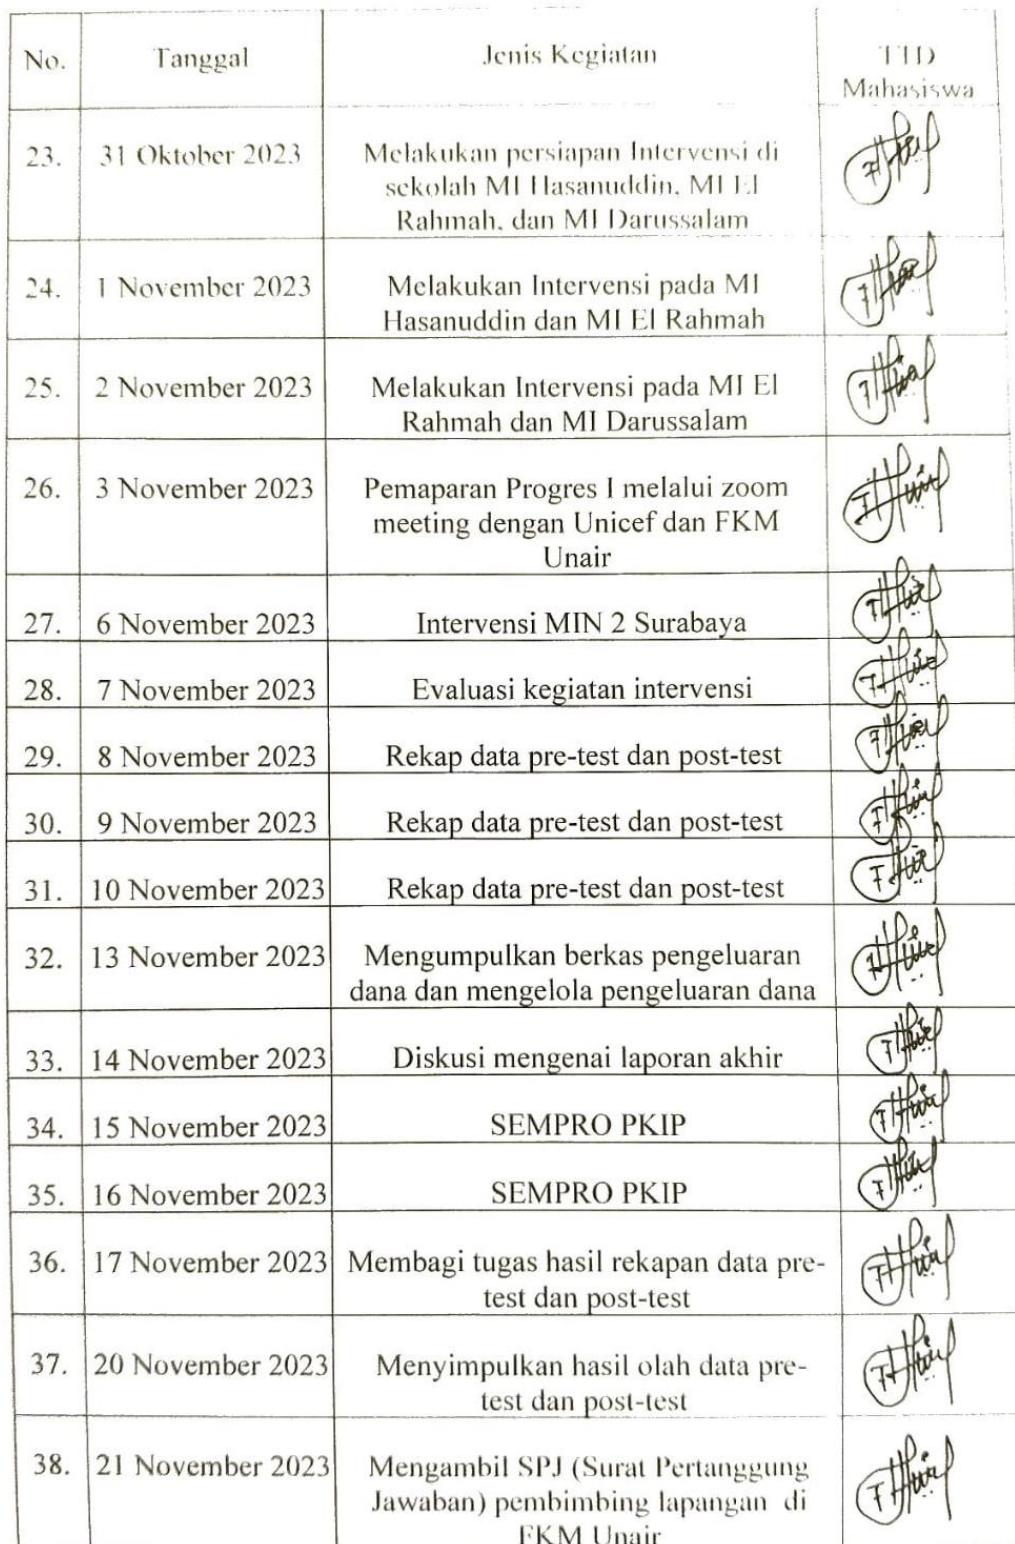 No. Tanggal Jenis Kegiatan TTD
Mahasiswa
23. 31 Oktober 2023 Melakukan persiapan Intervensi di
sekolah MI Hasanuddin, MI El
Rahmah, dan MI Darussalam
24. 1 November 2023 Melakukan Intervensi pada MI
Hasanuddin dan MI El Rahmah
25. 2 November 2023 Melakukan Intervensi pada MI El
Rahmah dan MI Darussalam
26. 3 November 2023 Pemaparan Progres I melalui zoom
meeting dengan Unicef dan FKM
Unair
27. 6 November 2023 Intervensi MIN 2 Surabaya
28. 7 November 2023 Evaluasi kegiatan intervensi
29. 8 November 2023 Rekap data pre-test dan post-test
30. 9 November 2023 Rekap data pre-test dan post-test
31. 10 November 2023 Rekap data pre-test dan post-test
32. 13 November 2023 Mengumpulkan berkas pengeluaran
dana dan mengelola pengeluaran dana
33. 14 November 2023 Diskusi mengenai laporan akhir
34. 15 November 2023 SEMPRO PKIP
35. 16 November 2023 SEMPRO PKIP
36. 17 November 2023 Membagi tugas hasil rekapan data pre-
test dan post-test
37. 20 November 2023 Menyimpulkan hasil olah data pre-
test dan post-test
38. 21 November 2023 Mengambil SPJ (Surat Pertanggung
Jawaban) pembimbing lapangan di
FKM Unair